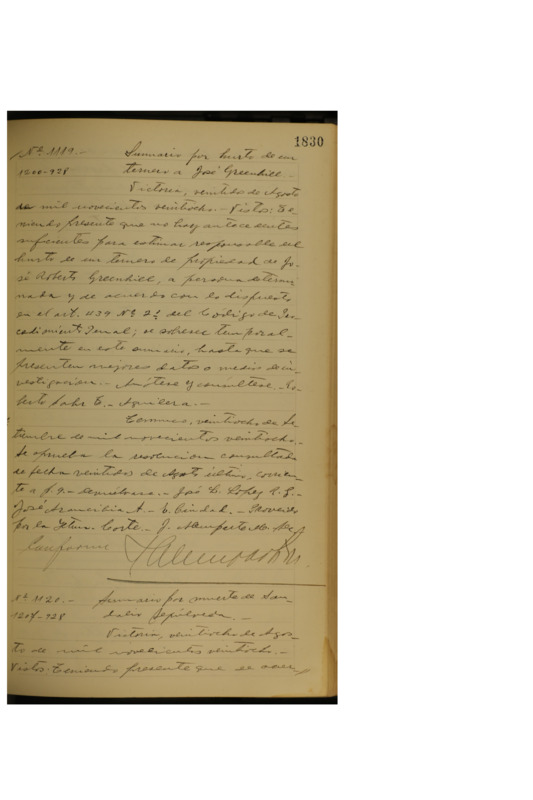 1830
Nº 1119.- Sumario por hurto de un
1200-928 ternero a José Greenhill.-
Victoria, veintidos de Agosto
de mil novecientos veintiocho.- Vistos: Te-
niendo presente que no hay antecedentes
suficientes para estimar responsable del
hurto de un ternero de propiedad de Jo-
sé Roberto Greenhill, a persona determi-
nada y de acuerdo con lo dispuesto
en el art. 439 Nº 2º del Codigo de Pro-
cedimiento Penal; se sobresee temporal-
mente en este sumario, hasta que se
presenten mejores datos o medios de in-
vestigacion.- Anótese y consúltese.- Ro-
berto Lahr E.- Aguilera.-
Temuco, veintiocho de Se-
tiembre de mil novecientos veintiocho.-
Se aprueba la resolucion consultada
de fecha veintidos de Agosto último, corrien-
te a f. 9.- Devuélvase.- José L. Lopez R. S.-
José Arancibia A.- Proveido
por la Iltma. Corte.- J.
Conforme
Nº 1120.- Sumario por muerte de San-
1204-928 dalio Sepúlveda.-
Victoria, veintiocho de Agos-
to de mil novecientos veintiocho.-
Vistos: Teniendo presente que se